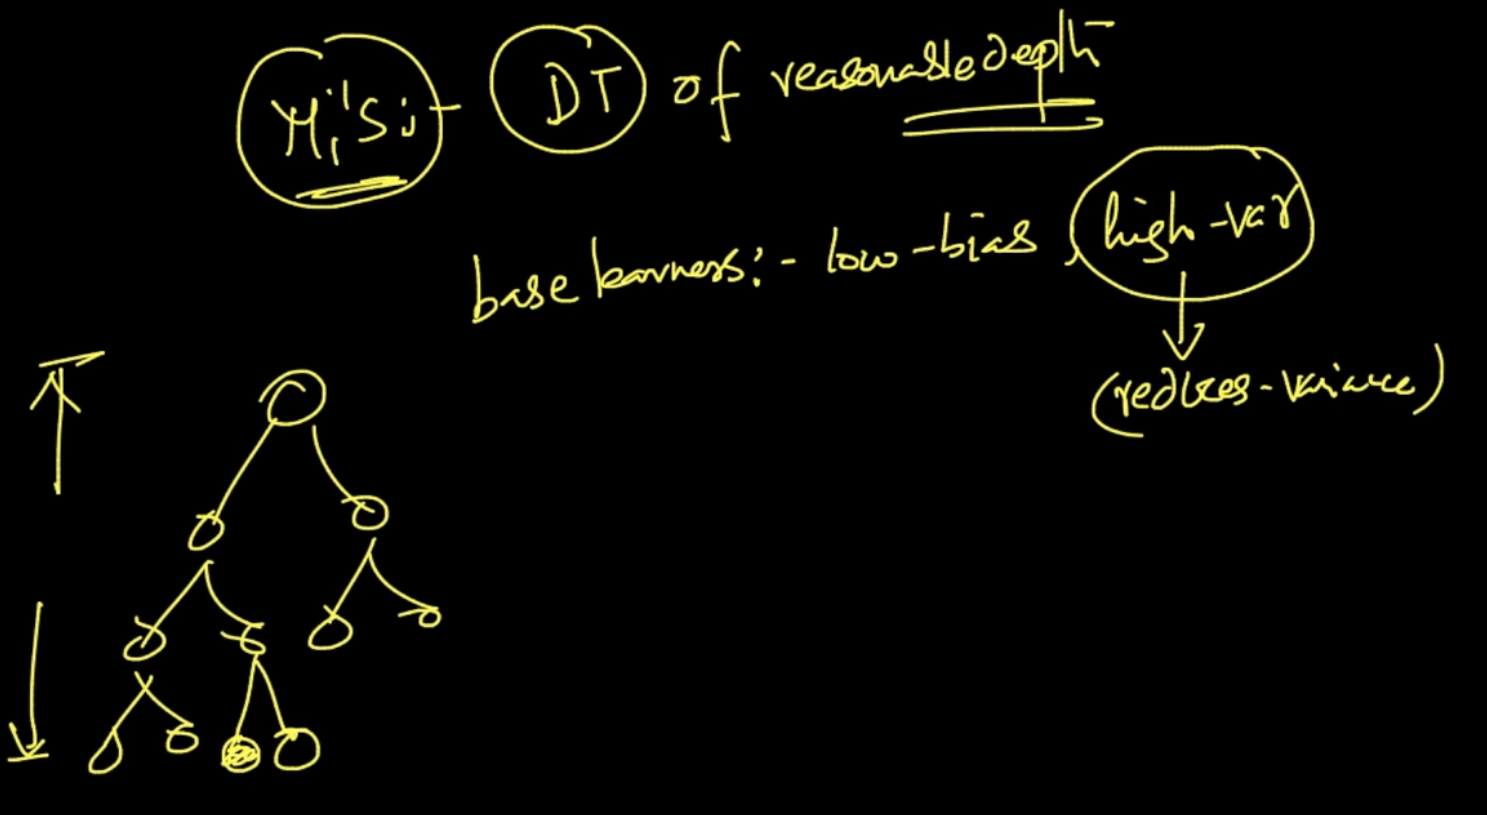 Mi's :- DT of reasonable depth
base learners :- low-bias, high-var
(reduces-variance)